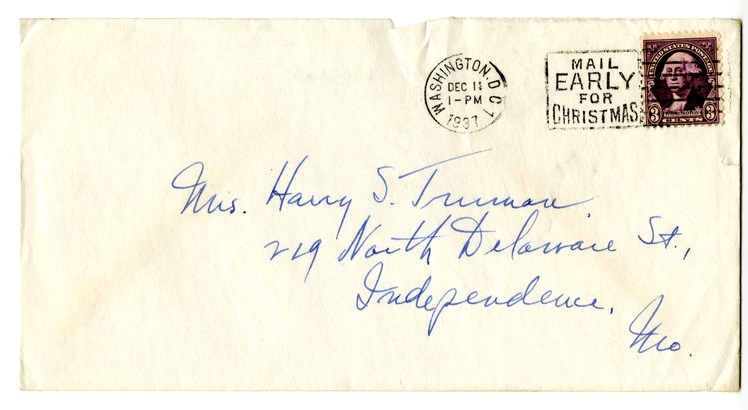 WASHINGTON. D.C. 1
DEC 11
1-PM
1937
MAIL
EARLY
FOR
CHRISTMAS
UNITED STATES POSTAGE
WASHINGTON
3 CENTS 3
Mrs. Harry S. Truman
219 North Delaware St.,
Independence,
Mo.